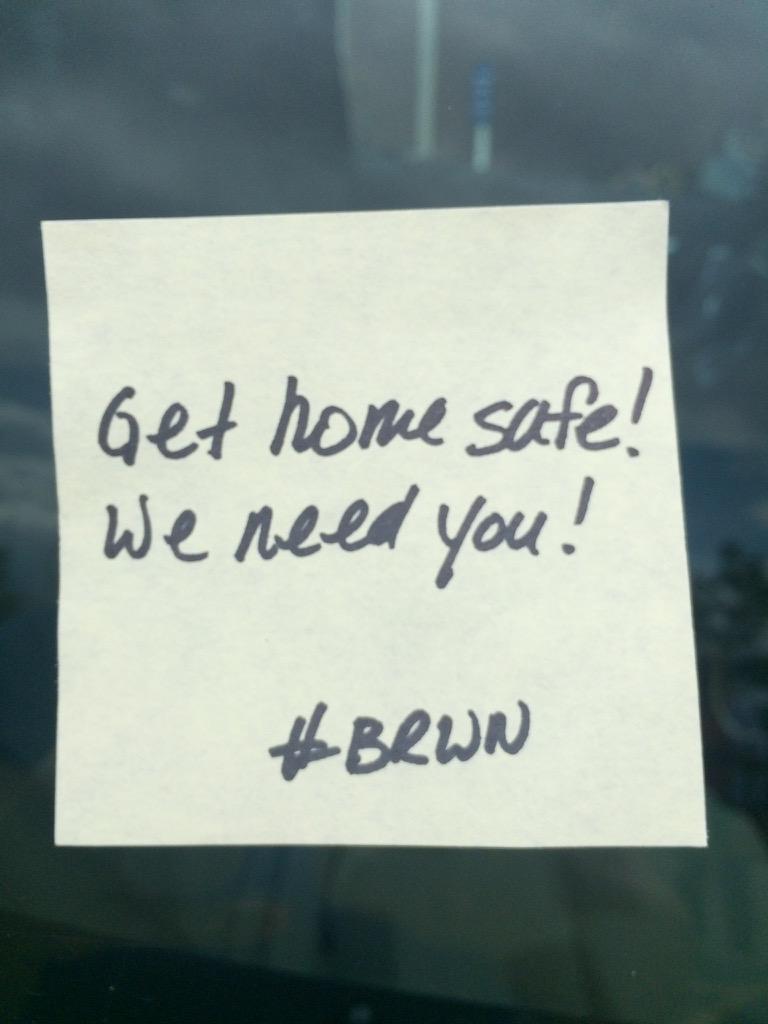 Get home safe!
We need you!
#BRWN